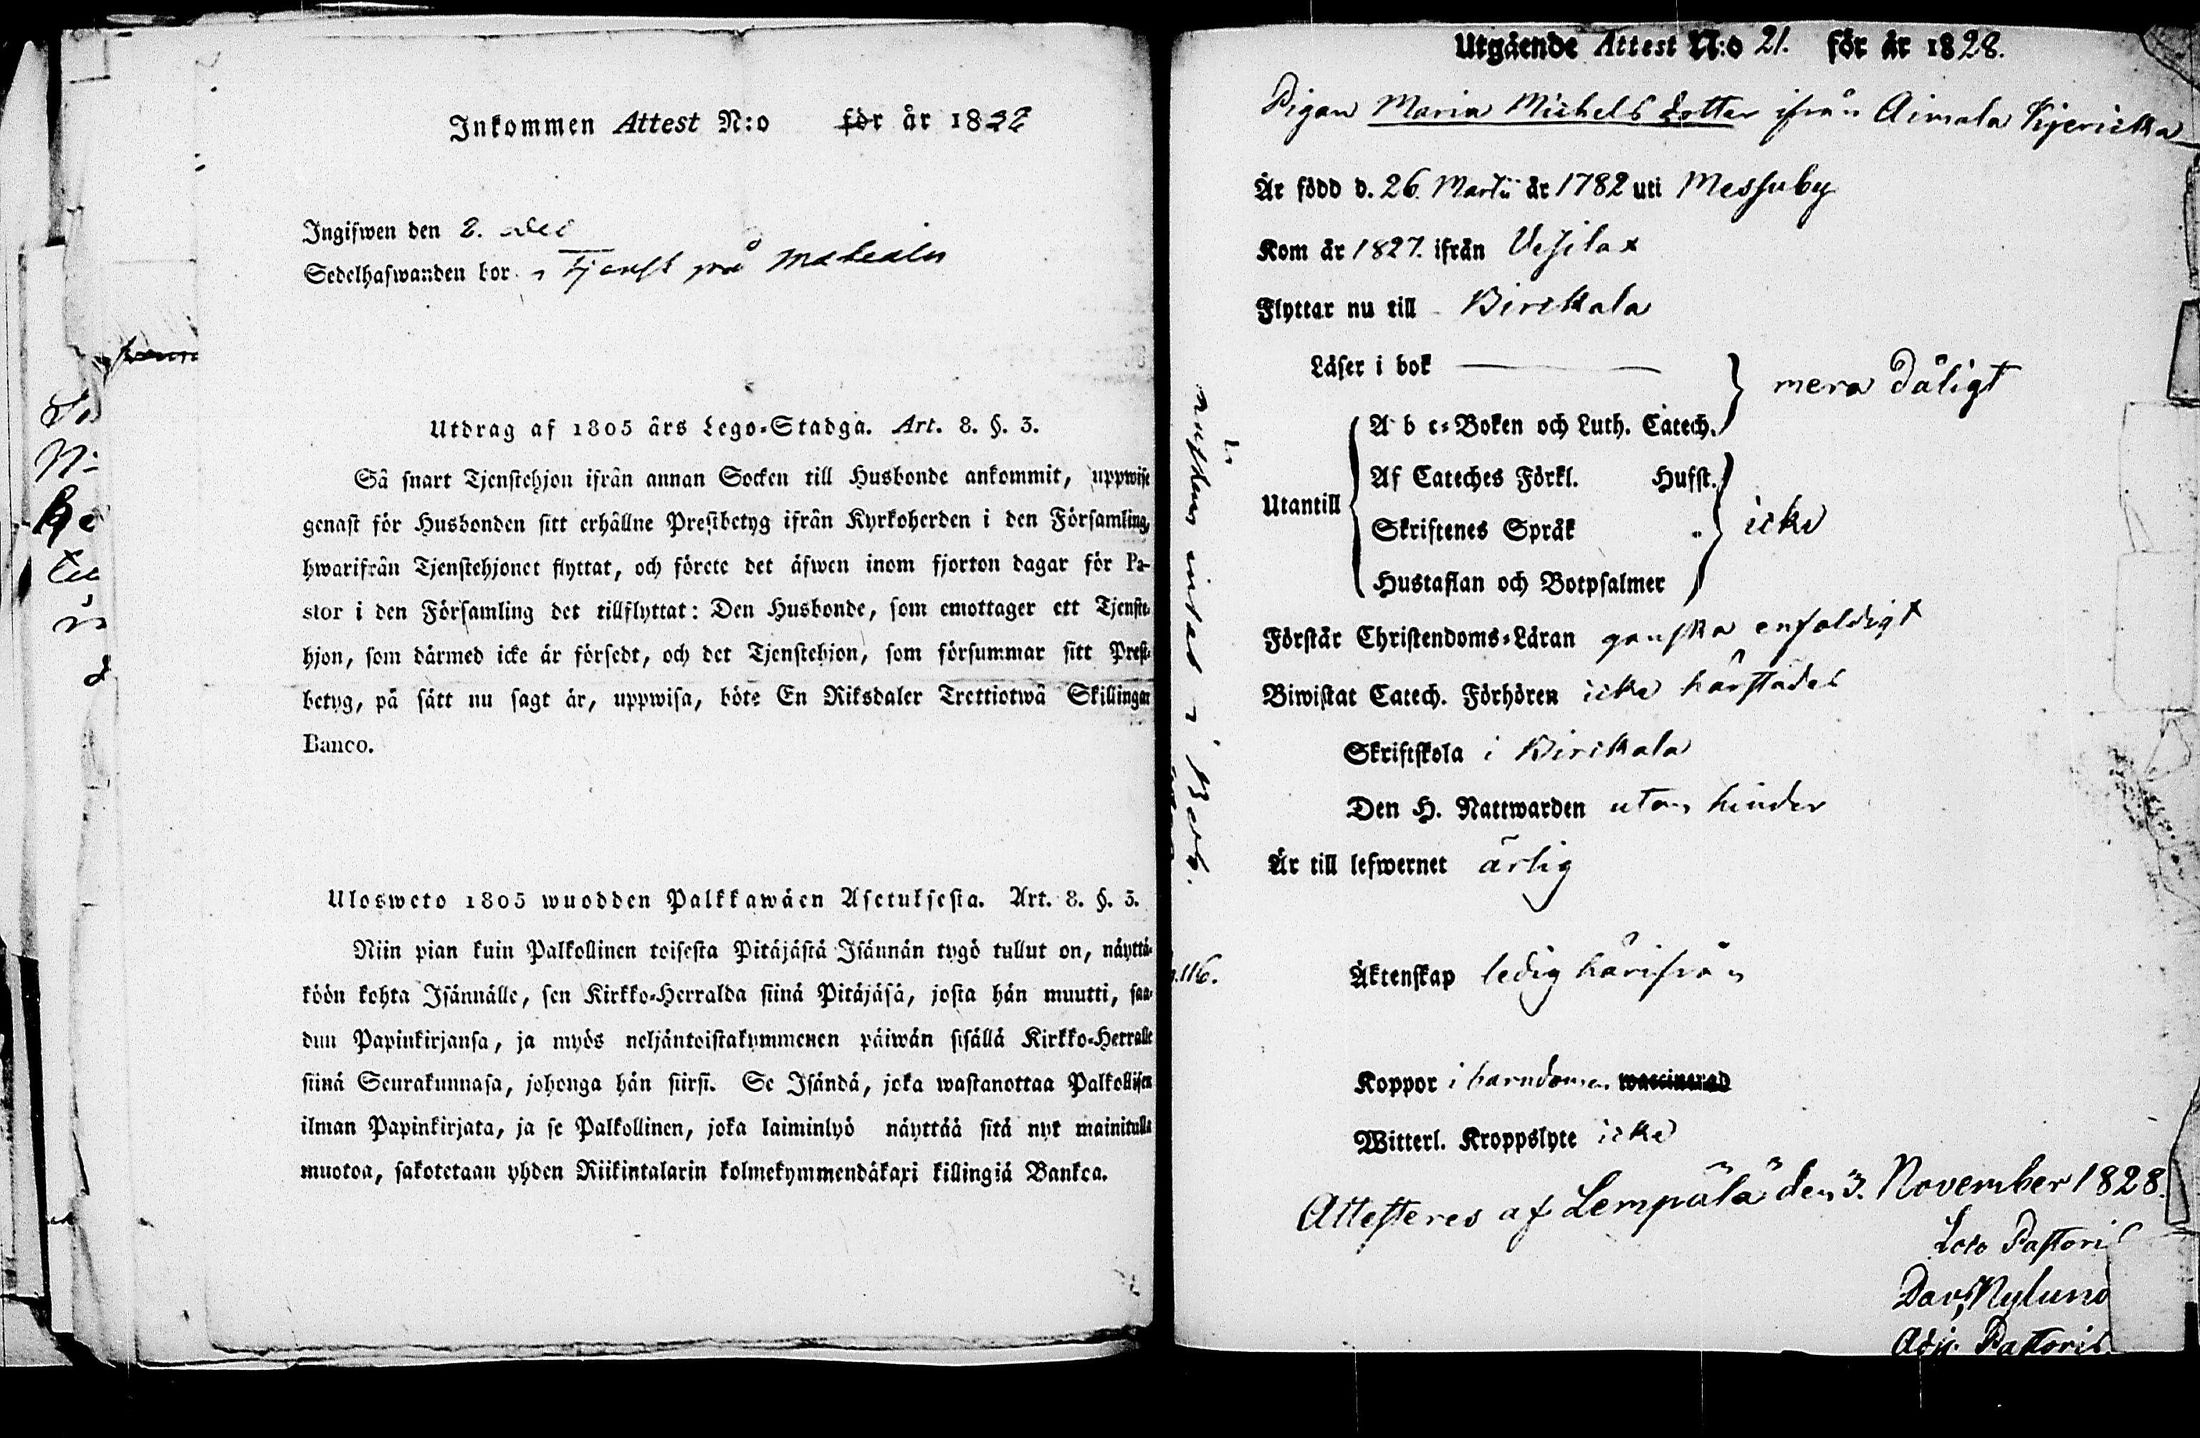 Inkommen Attest N:o för år 18
Ingifwen den 2.
Sedelhafwanden bor i tjenst på
Utdrag af 1805 års Lego-Stadga. Art. 8. §. 3.
Så snart Tjenstehjon ifrån annan Socken till Husbonde ankommit, uppwise
genast för Husbonden sitt erhållne Prestbetyg ifrån Kyrkoherden i den Församling,
hwarifrån Tjenstehjonet flyttat, och förete det äfwen inom fjorton dagar för Pa-
stor i den Församling det tillflyttat: Den Husbonde, som emottager ett Tjenste-
hjon, som därmed icke är försedt, och det Tjenstehjon, som försummar sitt Prest-
betyg, på sätt nu sagt är, uppwisa, böte En Riksdaler Trettiotwå Skillingar
Banco.
Ulosweto 1805 wuodden Palkkawäen Asetuksesta. Art. 8. §. 3.
Niin pian kuin Palkollinen toisesta Pitäjästä Isännän tygö tullut on, näyttä-
köön kohta Isännälle, sen Kirkko-Herralda siinä Pitäjäsä, josta hän muutti, saa-
dun Papinkirjansa, ja myös neljäntoistakymmenen päiwän sisällä Kirkko-Herralle
siinä Seurakunnasa, johonga hän siirsi. Se Isändä, joka wastanottaa Palkollisen
ilman Papinkirjata, ja se Palkollinen, joka laiminlyö näyttää sitä nyt mainitulla
muotoa, sakotetaan yhden Riikintalarin kolmekymmendäkaxi killingiä Bankoa.
Utgående Attest N:o 21. för år 1828.
Pigan Maria Michelsdotter ifrån Aimala Kjericka
Är född d. 26. Martii år 1782 uti Messuby
Kom år 1827. ifrån Vesilax
Flyttar nu till Birckala
Läser i bok
mera dåligt
A b c-Boken och Luth. Catech.
Af Cateches Förkl. Hufst.
Utantill
Skriftenes Språk
icke
Hustaflan och Botpsalmer
Förstår Christendoms-Läran ganska enfaldigt
Biwistat Catech. Förhören icke härstädes
Skriftskola i Birckala
Den H. Nattwarden utan hinder
Är till lefwernet ärlig
116.
Äktenskap ledig härifrån
Koppor i barndomen waccinerad
Witterl. Kroppslyte icke
Attesteres af Lempälä den 3. November 1828.
Loco Pastoris
Dav. Nylund
Adj. Pastoris.